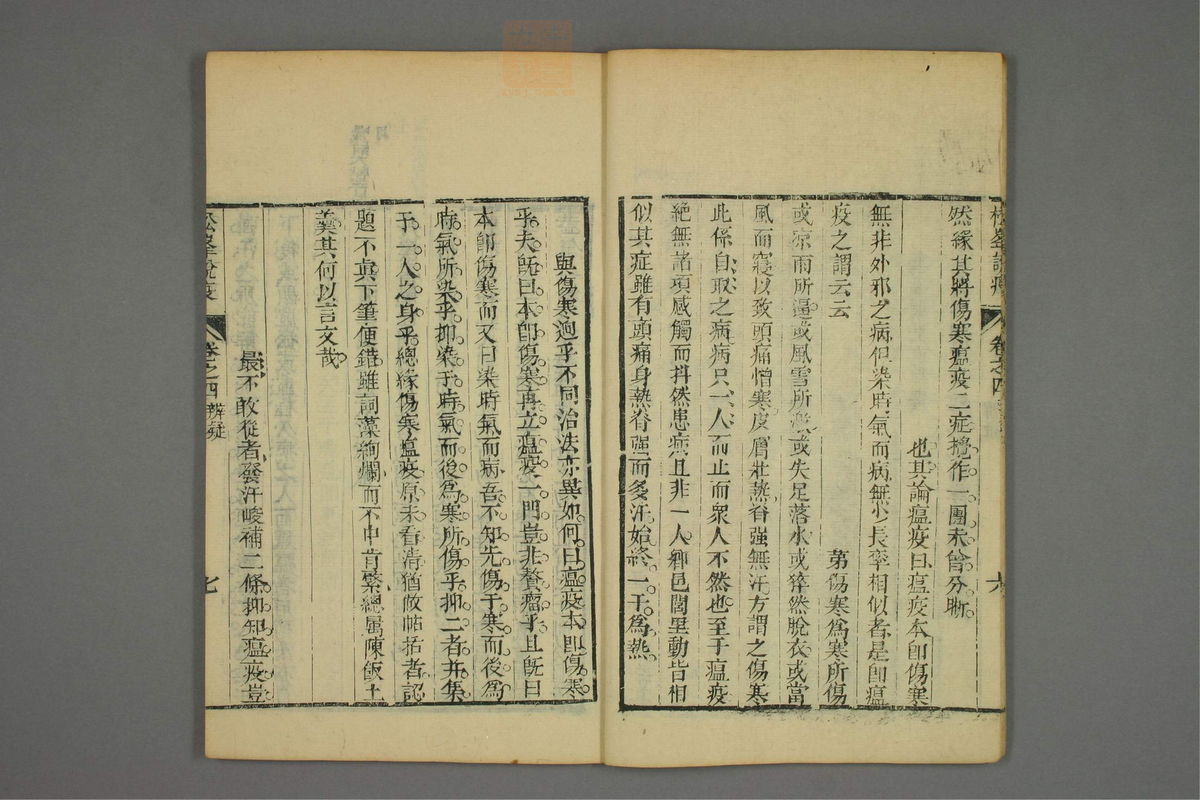 然緣其將傷寒瘟疫二症攪作一團未曾分晰
也其論瘟疫曰瘟疫本即傷寒
無非外邪之病但染時氣而病無少長率相似者是即瘟
疫之謂云云　第傷寒爲寒所傷
或凉雨所逼或風雪所激或失足落水或猝然脫衣或當
風而寢以致頭痛憎寒皮膚壯熱脊强無汗方謂之傷寒
此係自取之病病只一人而止而衆人不然也至于瘟疫
絕無諸項感觸而抖然患病且非一人鄉邑閭里動皆相
似其症雖有頭痛身熱脊强而多汗始終一于爲熱
卷之四
六
與傷寒迥乎不同治法亦異如何曰瘟疫本即傷寒
乎夫旣曰本即傷寒再立瘟疫一門豈非贅瘤乎且旣曰
本即傷寒而又曰染時氣而病吾不知先傷于寒而後爲
時氣所染乎抑染于時氣而後爲寒所傷乎抑二者并集
于一人之身乎總緣傷寒瘟疫原未看清猶倣帖括者認
題不眞下筆便錯雖詞藻絢爛而不中肯綮總屬陳飯土
羹其何以言文哉
最不敢從者發汗峻補二條抑知瘟疫豈
松峯說疫
卷之四
辨疑
七